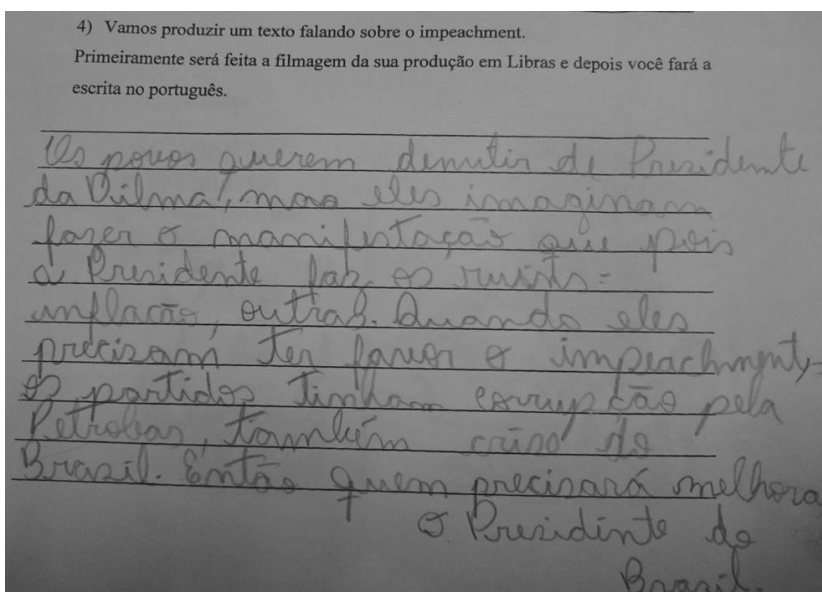 4) Vamos produzir um texto falando sobre o impeachment.
Primeiramente será feita a filmagem da sua produção em Libras e depois você fará a
escrita no português.
Os povos querem demitir de Presidente
da Dilma, mas eles imaginam
fazer o manifestação que pois
a Presidente faz os
inflacão, outras. Quando eles
precisam ter favor o impeachment,
os partidos tinham corrupção pela
Petrobas, também crise do
Brasil. Então quem precisará melhora
o Presidente do
Brasil.